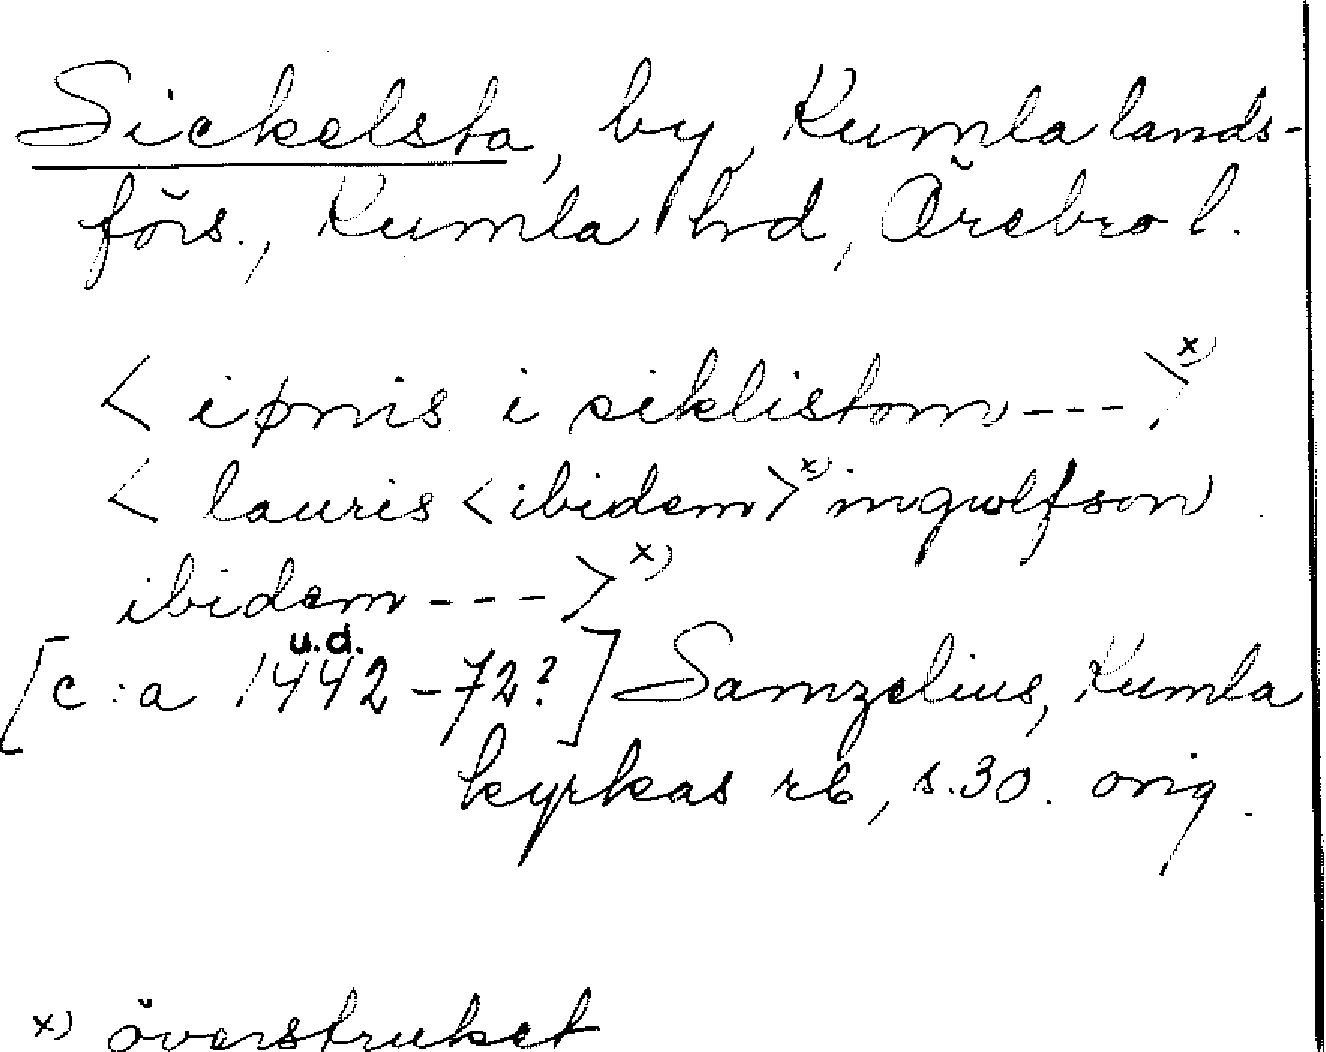 Sickelsta, by, Kumla lands-
förs., Kumla hd, Örebro l.
< ipmis i siklistom --- >x)
< lauris < ibidem >x) ingwolfson
ibidem --- >x)
u.d.
[c:a 1442-72?] Samzelius, Kumla
kyrkas rb, s.30. orig.
x) överstruket